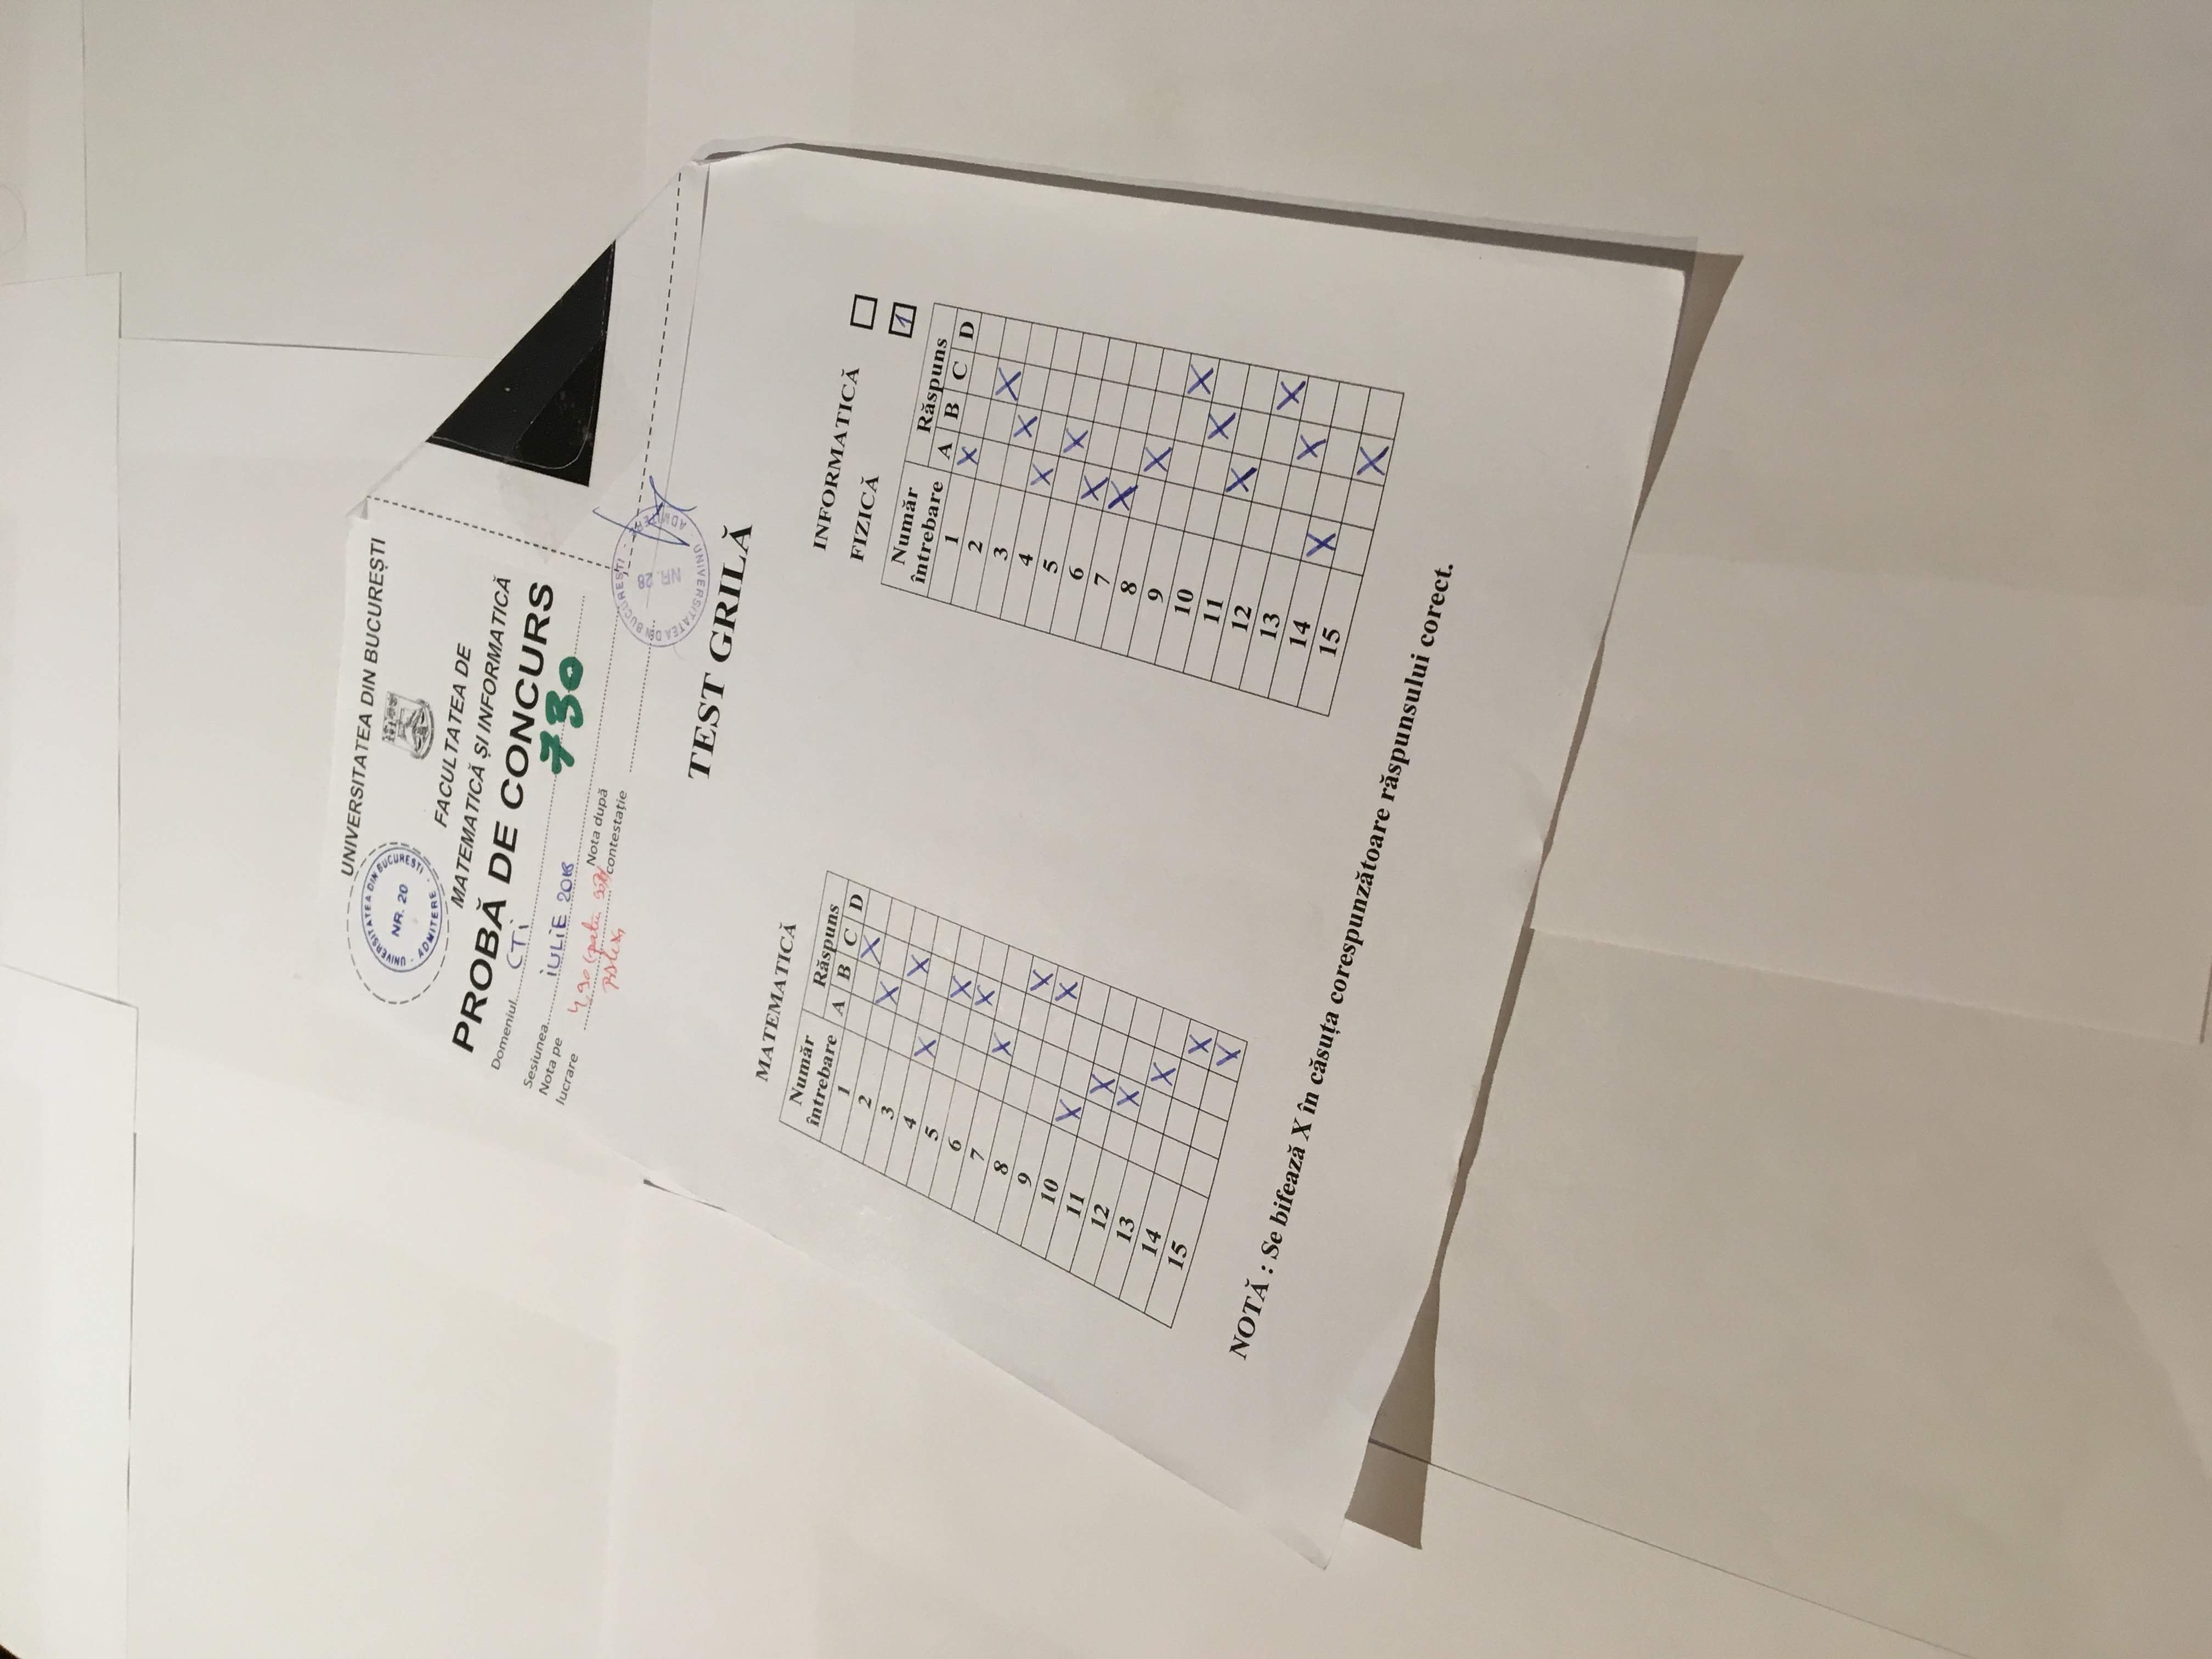 UNIVERSITATEA DIN BUCUREȘTI
UNIVERSITATEA DIN BUCURESTI
NR. 20
ADMITERE
FACULTATEA DE
MATEMATICĂ ȘI INFORMATICĂ
PROBĂ DE CONCURS
Domeniul CTi
730
Sesiunea iULiE 2018
Nota pe
lucrare 4,90 (patru
Nota după
contestație
UNIVERSITATEA DIN BUCURESTI
NR. 28
ADMITERE
TEST GRILĂ
MATEMATICĂ
Număr
întrebare
Răspuns
A B C D
1 X
2 X
3 X
4 X
5 X
6 X
7 X
8 X
9 X
10 X
11 X
12 X
13 X
14 X
15 X
INFORMATICĂ
FIZICĂ 1
Număr
întrebare
Răspuns
A B C D
1 X
2 X
3 X
4 X
5 X
6 X
7 X
8 X
9 X
10 X
11 X
12 X
13 X
14 X
15 X
NOTĂ : Se bifează X în căsuța corespunzătoare răspunsului corect.